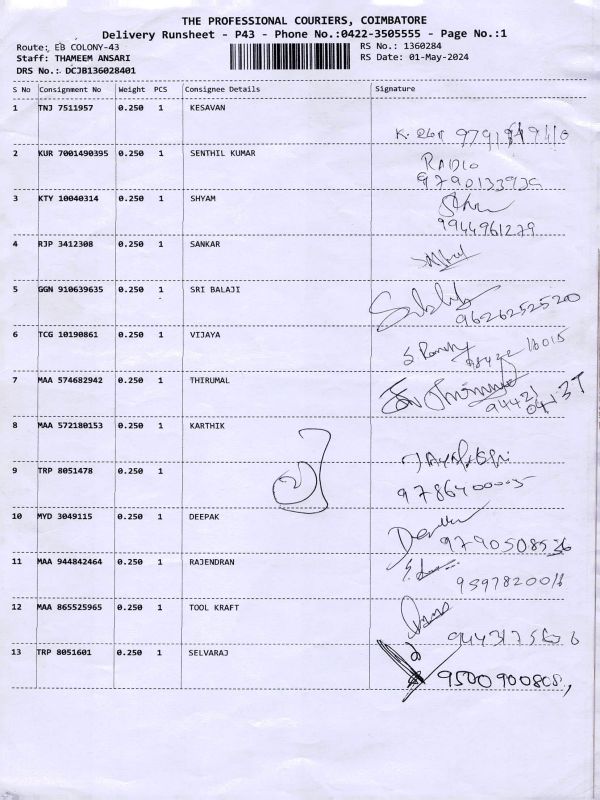 THE PROFESSIONAL COURIERS, COIMBATORE
Delivery Runsheet - P43 - Phone No.:0422-3505555 - Page No.:1
Route: EB COLONY-43 RS No.: 1360284
Staff: THAMEEM ANSARI RS Date: 01-May-2024
DRS No.: DCJB136028401
S No Consignment No Weight PCS Consignee Details Signature
1 TNJ 7511957 0.250 1 KESAVAN
2 KUR 7001490395 0.250 1 SENTHIL KUMAR RADIO
9790133925
3 KTY 10040314 0.250 1 SHYAM
9944961279
4 RJP 3412308 0.250 1 SANKAR
5 GGN 910639635 0.250 1 SRI BALAJI
9626252520
6 TCG 10190861 0.250 1 VIJAYA
7 MAA 574682942 0.250 1 THIRUMAL
94421
8 MAA 572180153 0.250 1 KARTHIK
9 TRP 8051478 0.250 1
9786400005
10 MYD 3049115 0.250 1 DEEPAK
9790508536
11 MAA 944842464 0.250 1 RAJENDRAN
12 MAA 865525965 0.250 1 TOOL KRAFT
13 TRP 8051601 0.250 1 SELVARAJ
9500900805